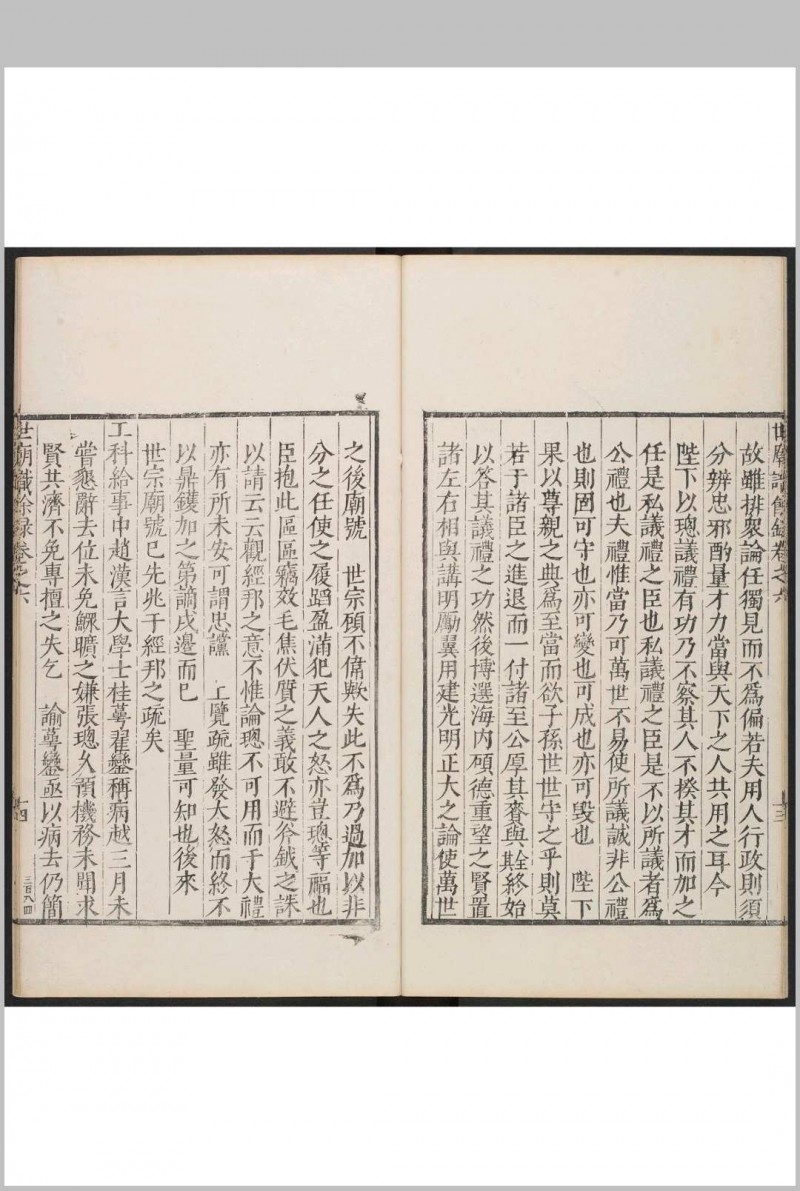 世廟識餘錄卷之六
十三
故雖排衆論任獨見而不爲偏若夫用人行政則須
分辨忠邪酌量才力當與天下之人共用之耳今
陛下以璁議禮有功乃不察其人不揆其才而加之
任是私議禮之臣也私議禮之臣是不以所議者爲
公禮也夫禮惟當乃可萬世不易使所議誠非公禮
也則固可守也亦可變也可成也亦可毁也　陛下
果以尊親之典爲至當而欲子孫世世守之乎則莫
若于諸臣之進退而一付諸至公厚其賚與終始
以答其議禮之功然後博選海内碩德重望之賢置
諸左右相與講明勵翼用建光明正大之論使萬世
之後廟號　世宗碩不偉歟失此不爲乃過加以非
分之任使之履蹈盈滿犯天人之怒亦豈璁等福也
臣抱此區區竊效毛焦伏質之義敢不避斧鉞之誅
以請云云觀經邦之意不惟論璁不可用而于大禮
亦有所未安可謂忠讜　上覽疏雖發大怒而終不
以鼎鑊加之第謫戍邊而已　聖量可知也後來
世宗廟號已先兆于經邦之疏矣
工科給事中趙漢言大學士桂萼翟鑾稱病越三月未
嘗懇辭去位未免鰥曠之嫌張璁久預機務未聞求
賢共濟不免專擅之失乞　諭萼鑾亟以病去仍簡
世廟識餘錄卷之六
十四
三百八四